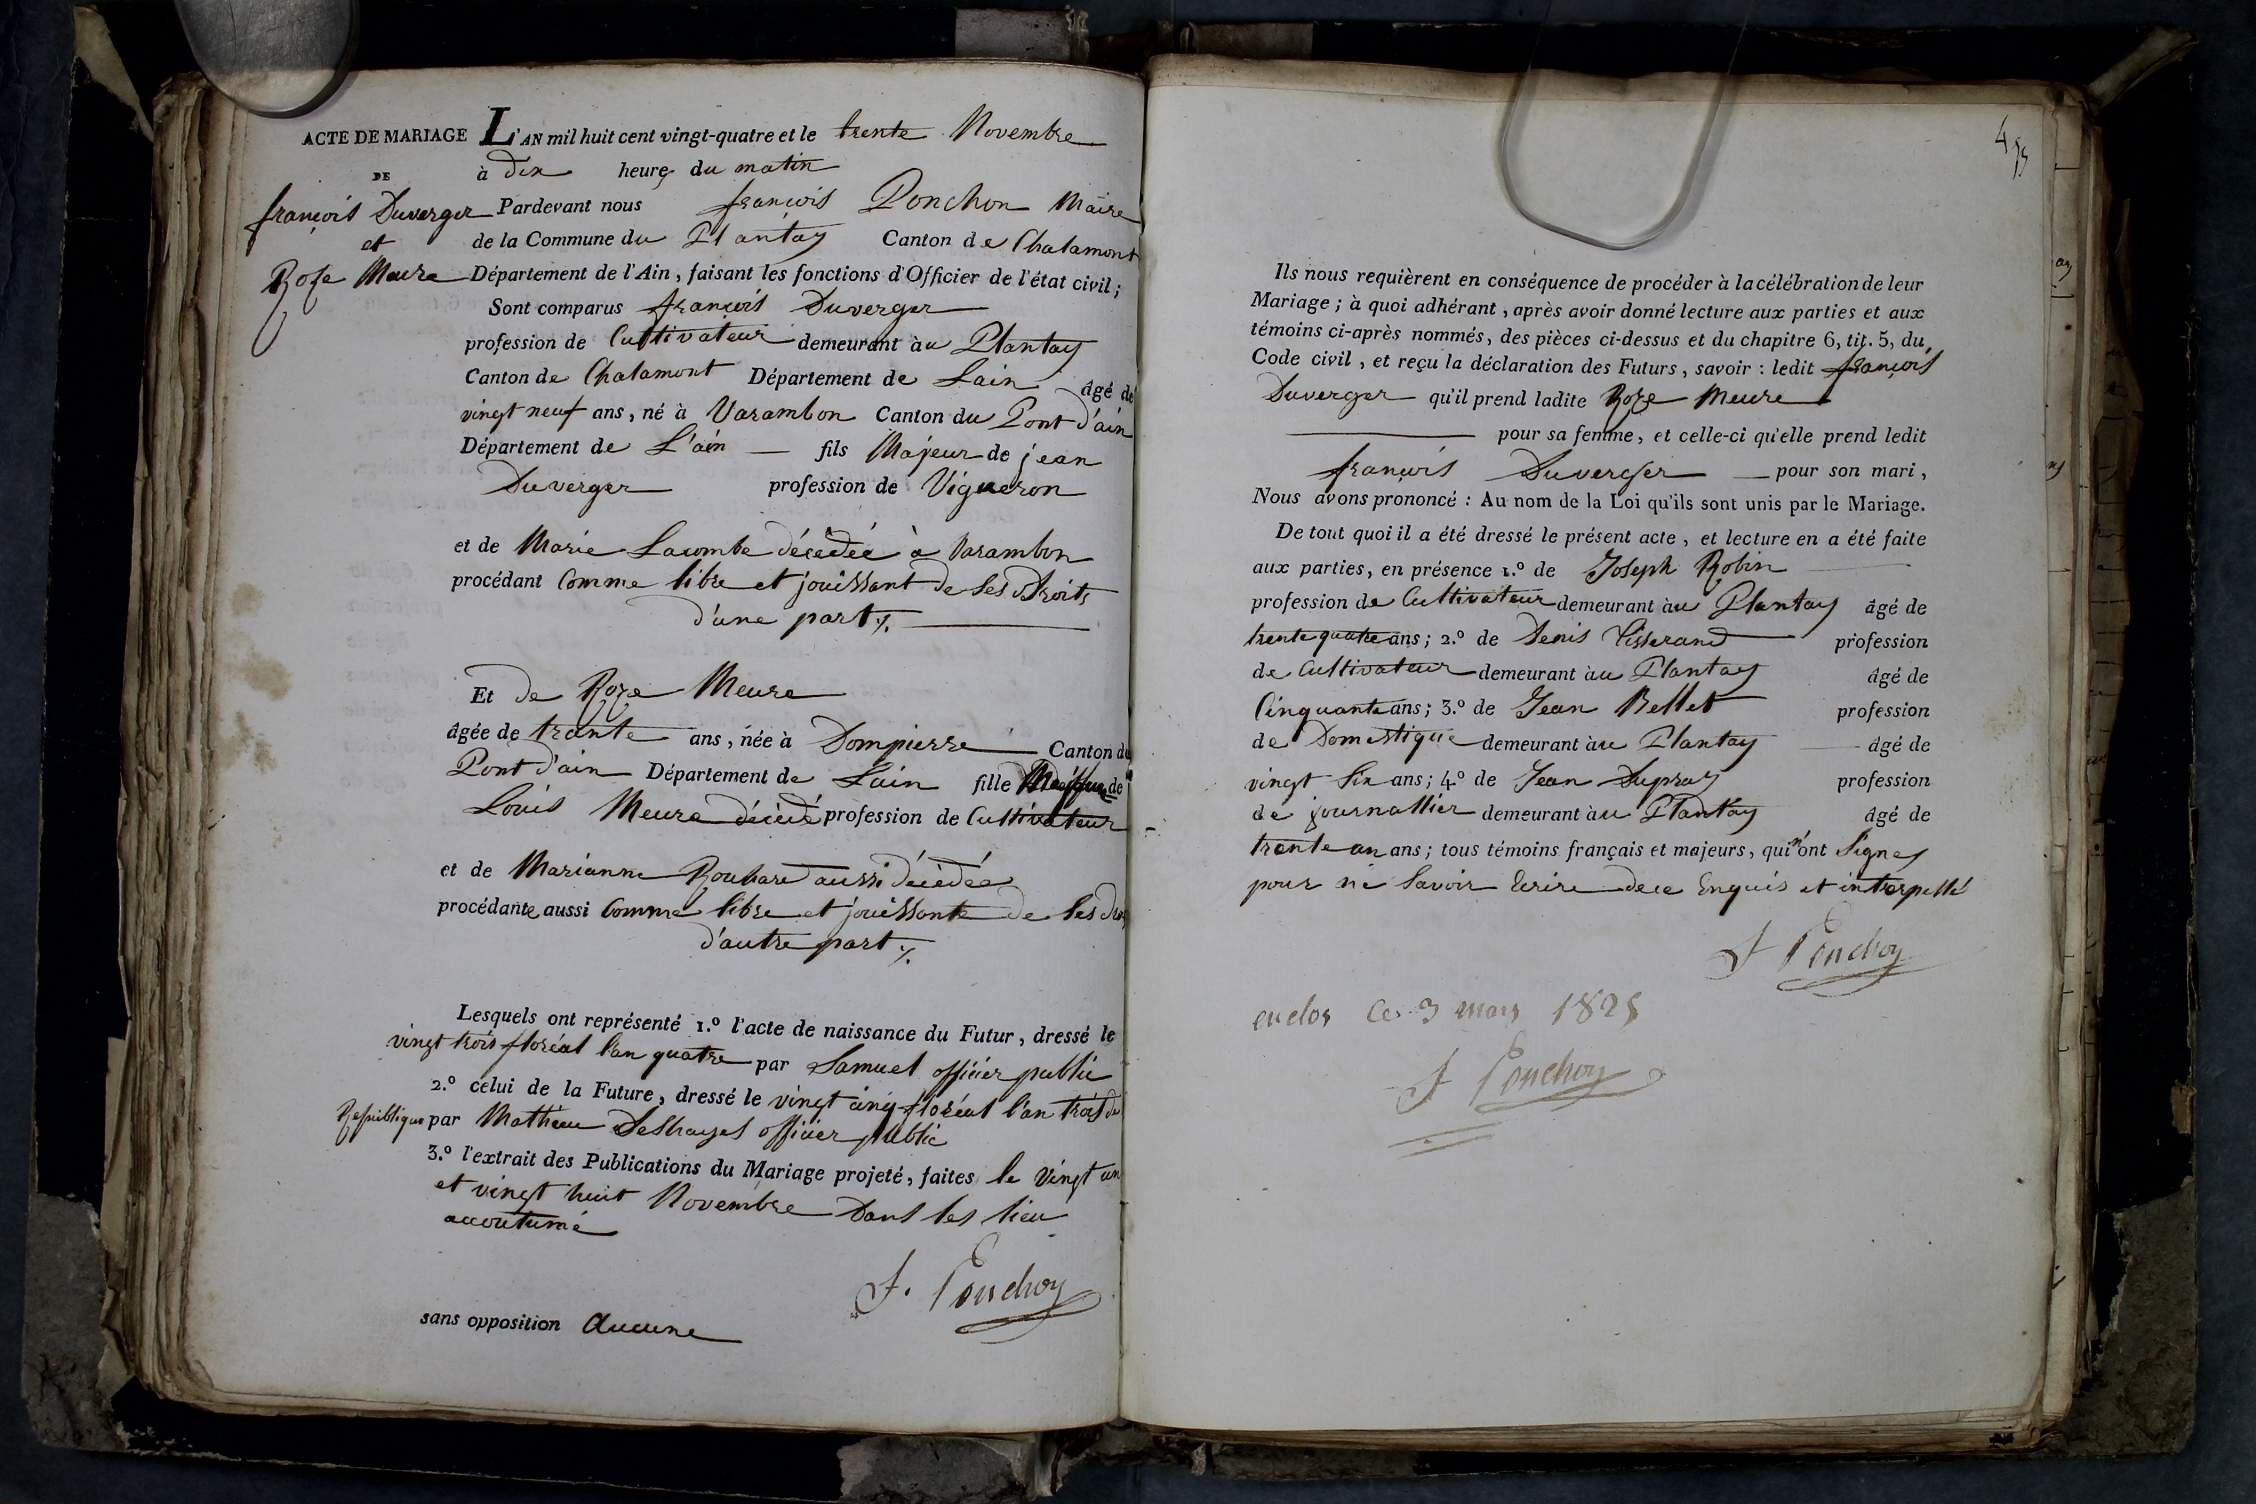 ACTE DE MARIAGE L'AN mil huit cent vingt-quatre et le trente Novembre
DE à dix heures du matin
françois Duverger Pardevant nous françois Ponchon Maire
et de la Commune du Plantay Canton de Chalamont
Roze Meure Département de l'Ain, faisant les fonctions d'Officier de l'état civil;
Sont comparus françois Duverger
profession de Cultivateur demeurant àu Plantay
Canton de Chalamont Département de Lain âgé de
vingt neuf ans, né à Varambon Canton du Pont d'ain
Département de L'ain fils Majeur de jean
Duverger profession de Vigneron
et de Marie Lacombe décédée à Varambon
procédant Comme libre et jouissant de ses Droits
d'une part %.
Et de Roze Meure
âgée de trente ans, née à Dompierre Canton du
Pont d'ain Département de Lain fille de
Louis Meure décédé profession de Cultivateur
et de Marianne aussi décédée
procédante aussi Comme libre et jouissante de ses
d'autre part %.
Lesquels ont représenté 1.º l'acte de naissance du Futur, dressé le
vingt trois floréal l'an quatre par Samuel officier public
2.º celui de la Future, dressé le vingt cinq floréal l'an trois de
Republique par Mathieu Deshayes officier public
3.º l'extrait des Publications du Mariage projeté, faites le vingt un
et vingt huit Novembre Dans les lieu
accoutumé
F. Ponchon
sans opposition Aucune
Ils nous requièrent en conséquence de procéder à la célébration de leur
Mariage; à quoi adhérant, après avoir donné lecture aux parties et aux
témoins ci-après nommés, des pièces ci-dessus et du chapitre 6, tit. 5, du
Code civil, et reçu la déclaration des Futurs, savoir: ledit françois
Duverger qu'il prend ladite Roze Meure
pour sa femme, et celle-ci qu'elle prend ledit
françois Duverger pour son mari,
Nous avons prononcé: Au nom de la Loi qu'ils sont unis par le Mariage.
De tout quoi il a été dressé le présent acte, et lecture en a été faite
aux parties, en présence 1.º de Joseph Robin
profession de Cultivateur demeurant àu Plantay âgé de
trente quatre ans; 2.º de Denis Tisserand profession
de Cultivateur demeurant àu Plantay âgé de
Cinquante ans; 3.º de Jean Bellet profession
de Domestique demeurant àu Plantay âgé de
vingt Six ans; 4.º de Jean Dupraz profession
de journallier demeurant àu Plantay âgé de
trente un ans; tous témoins français et majeurs, qui n'ont Signes
pour ne Savoir Ecrire dece Enquis et interpellé
F Ponchon
enclos Ce 3 mars 1825
F Ponchon